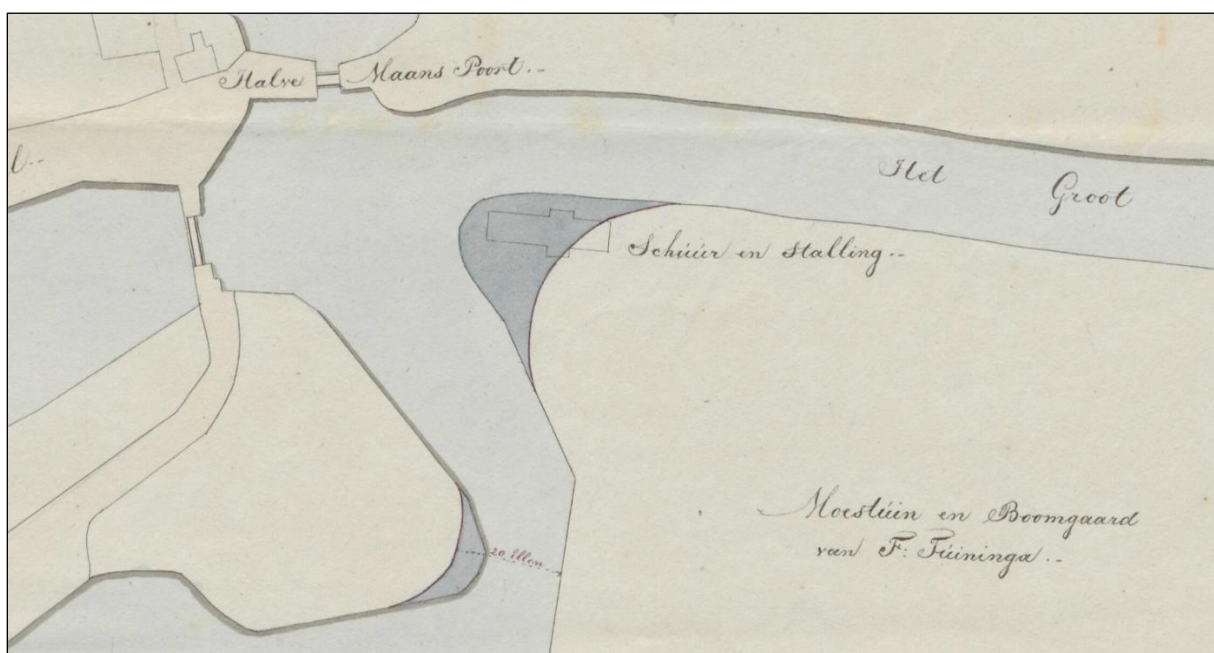 Halve Maans Poort.-
l.-
Het Groot
Schúúr en Stalling.-
Moestúin en Boomgaard
van F: Túininga.-
20 Ellen